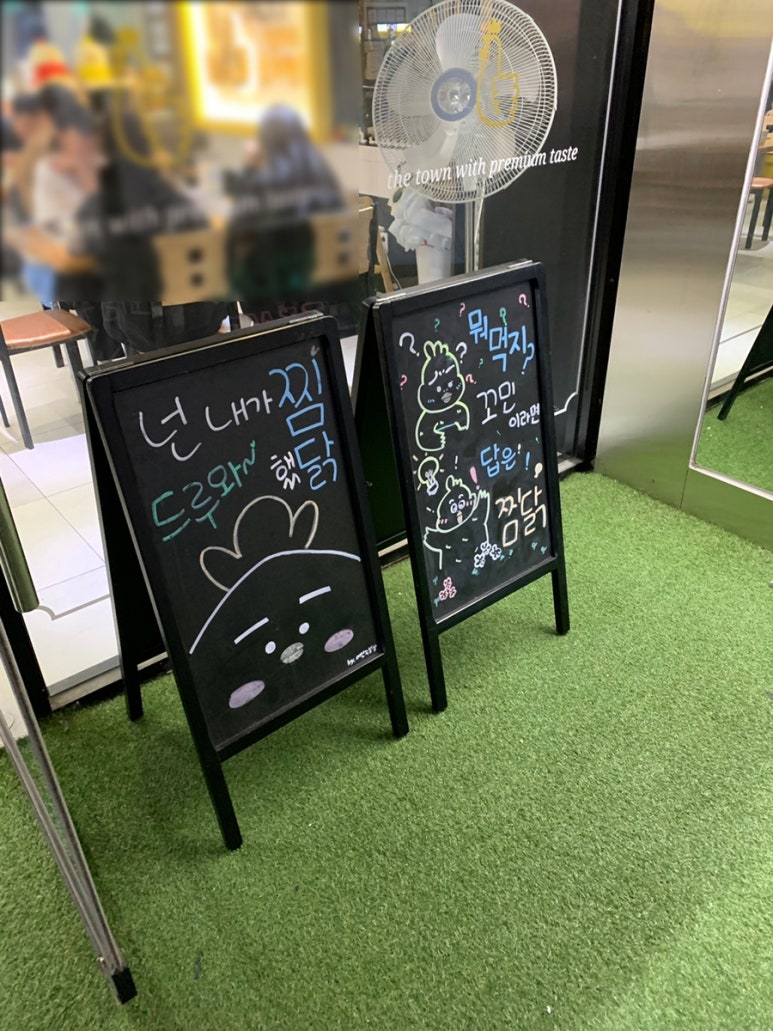 the town with premium taste
넌 내가 찜
했닭
드루와~
뭐
먹지?
꼬민
이라면
답은!
찜닭!